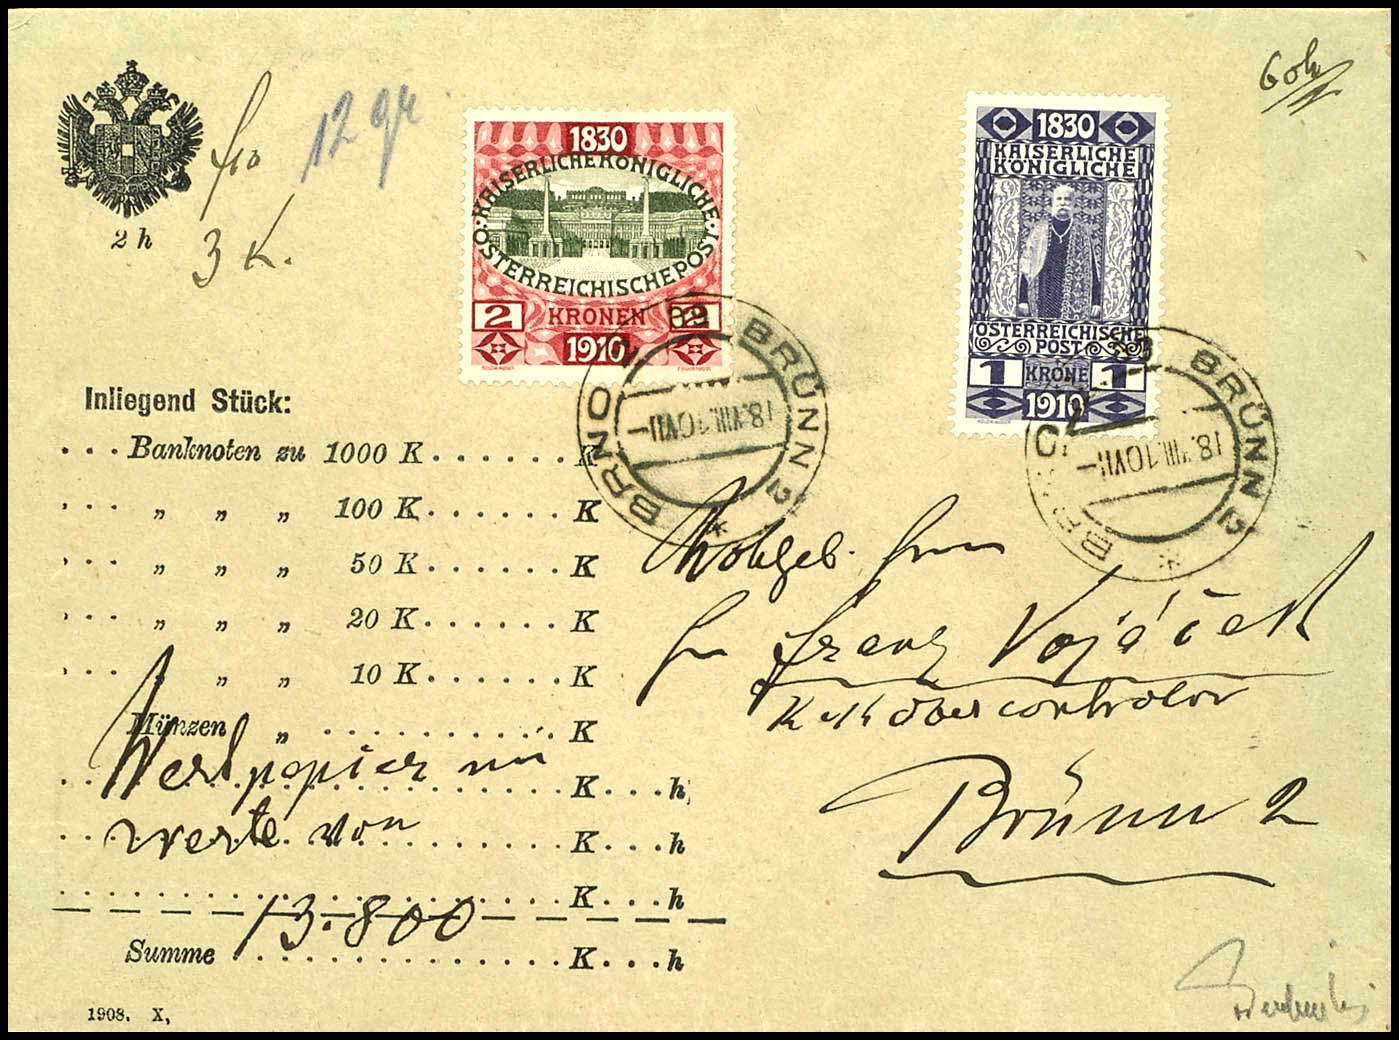 2 h
fro
3 K.
12 gr
60h
1830
KAISERLICHE KÖNIGLICHE
ÖSTERREICHISCHE POST
2 KRONEN 2
1910
1830
KAISERLICHE
KÖNIGLICHE
ÖSTERREICHISCHE
POST
1 KRONE 1
1910
BRNO 2 BRÜNN 2
18.VIII.10 VII-
BRÜNN 2
18.VIII.10 VII-
Inliegend Stück:
... Banknoten zu 1000 K ....... K
... „ „ „ 100 K ....... K
... „ „ „ 50 K ....... K
... „ „ „ 20 K ....... K
... „ „ 10 K ....... K
Münzen „ ............ K
Wertpapier im K...h
werte von K...h
K...h
13.800
Summe ............ K...h
1908. X.
Wohlgeb. Herrn
Hr Franz Vojáček
obercontrolor
Brünn 2